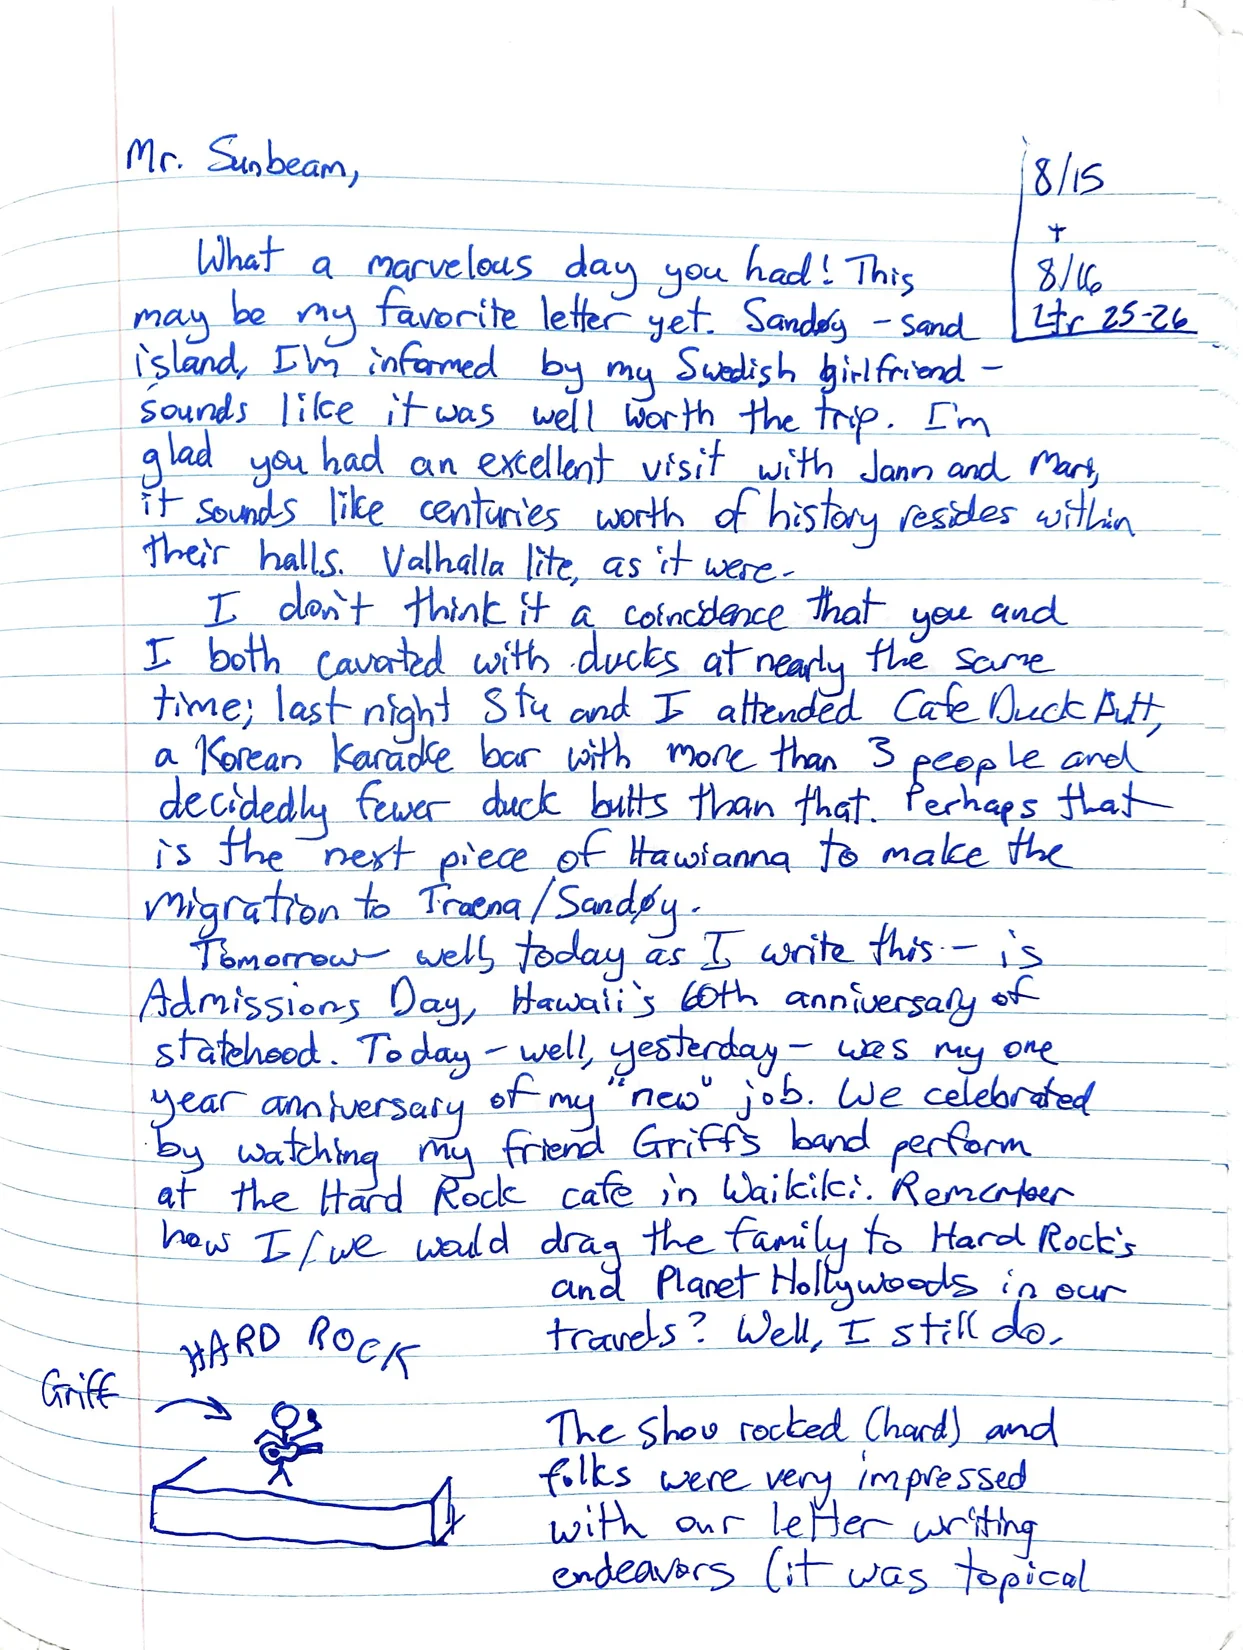 Mr. Sunbeam,
8/15
+
8/16
Ltr 25-26
What a marvelous day you had! This
may be my favorite letter yet. Sandøy - sand
island, I'm informed by my Swedish girlfriend -
sounds like it was well worth the trip. I'm
glad you had an excellent visit with Jann and Mari,
it sounds like centuries worth of history resides within
their halls. Valhalla lite, as it were.
I don't think it a coincidence that you and
I both cavorted with ducks at nearly the same
time; last night Stu and I attended Cafe Duck Butt,
a Korean Karaoke bar with more than 3 people and
decidedly fewer duck butts than that. Perhaps that
is the next piece of Hawianna to make the
migration to Traena/Sandøy.
Tomorrow - well, today as I write this - is
Admissions Day, Hawaii's 60th anniversary of
statehood. Today - well, yesterday - was my one
year anniversary of my "new" job. We celebrated
by watching my friend Griff's band perform
at the Hard Rock cafe in Waikiki. Remember
how I/we would drag the family to Hard Rock's
and Planet Hollywoods in our
travels? Well, I still do.
HARD ROCK
Griff
The show rocked (hard) and
folks were very impressed
with our letter writing
endeavors (it was topical